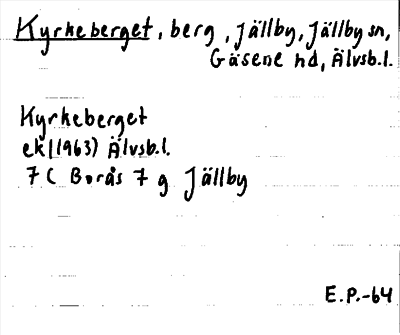 Kyrkeberget, berg, Jällby, Jällby sn,
Gäsene hd, Älvsb.l.
Kyrkeberget
ek(1963) Älvsb.l.
7 C Borås 7 g Jällby
E.P.-64